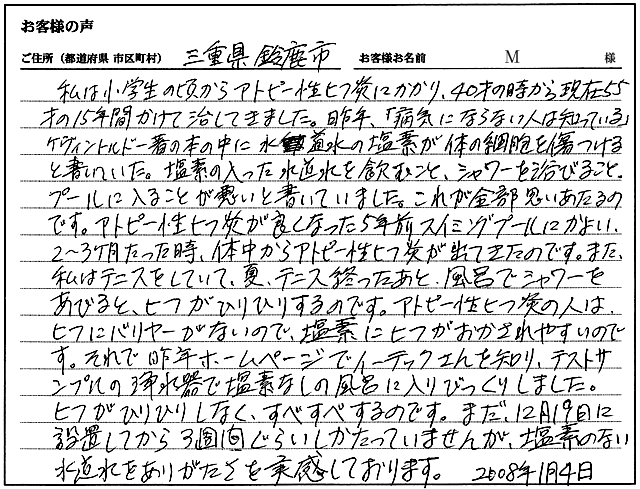 お客様の声
ご住所（都道府県 市区町村） 三重県 鈴鹿市 お客様お名前 M 様
私は小学生の頃からアトピー性ヒフ炎にかかり、40才の時から現在55
才の15年間かけて治してきました。昨年、「病気にならない人は知っている」
ケヴィントルドー著の本の中に水道水の塩素が体の細胞を傷つける
と書いていた。塩素の入った水道水を飲むこと、シャワーを浴びること、
プールに入ることが悪いと書いていました。これが全部思いあたるの
です。アトピー性ヒフ炎が良くなった5年前スイミングプールにかよい、
2～3ヶ月たった時、体中からアトピー性ヒフ炎が出てきたのです。また、
私はテニスをしていて、夏、テニス終ったあと、風呂でシャワーを
あびると、ヒフがひりひりするのです。アトピー性ヒフ炎の人は、
ヒフにバリヤーがないので、塩素にヒフがおかされやすいので
す。それで昨年ホームページでイーテックさんを知り、テストサ
ンプルの浄水器で塩素なしの風呂に入りびっくりしました。
ヒフがひりひりしなく、すべすべするのです。まだ、12月19日に
設置してから3週間ぐらいしかたっていませんが、塩素のない
水道水をありがたさを実感しております。 2008年1月4日